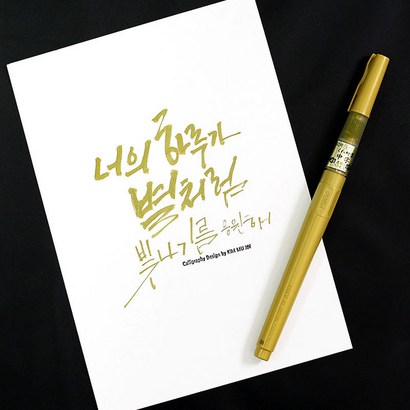 너의 하루가
별처럼
빛나기를 응원해
Calligraphy Design by KIM MU JIN